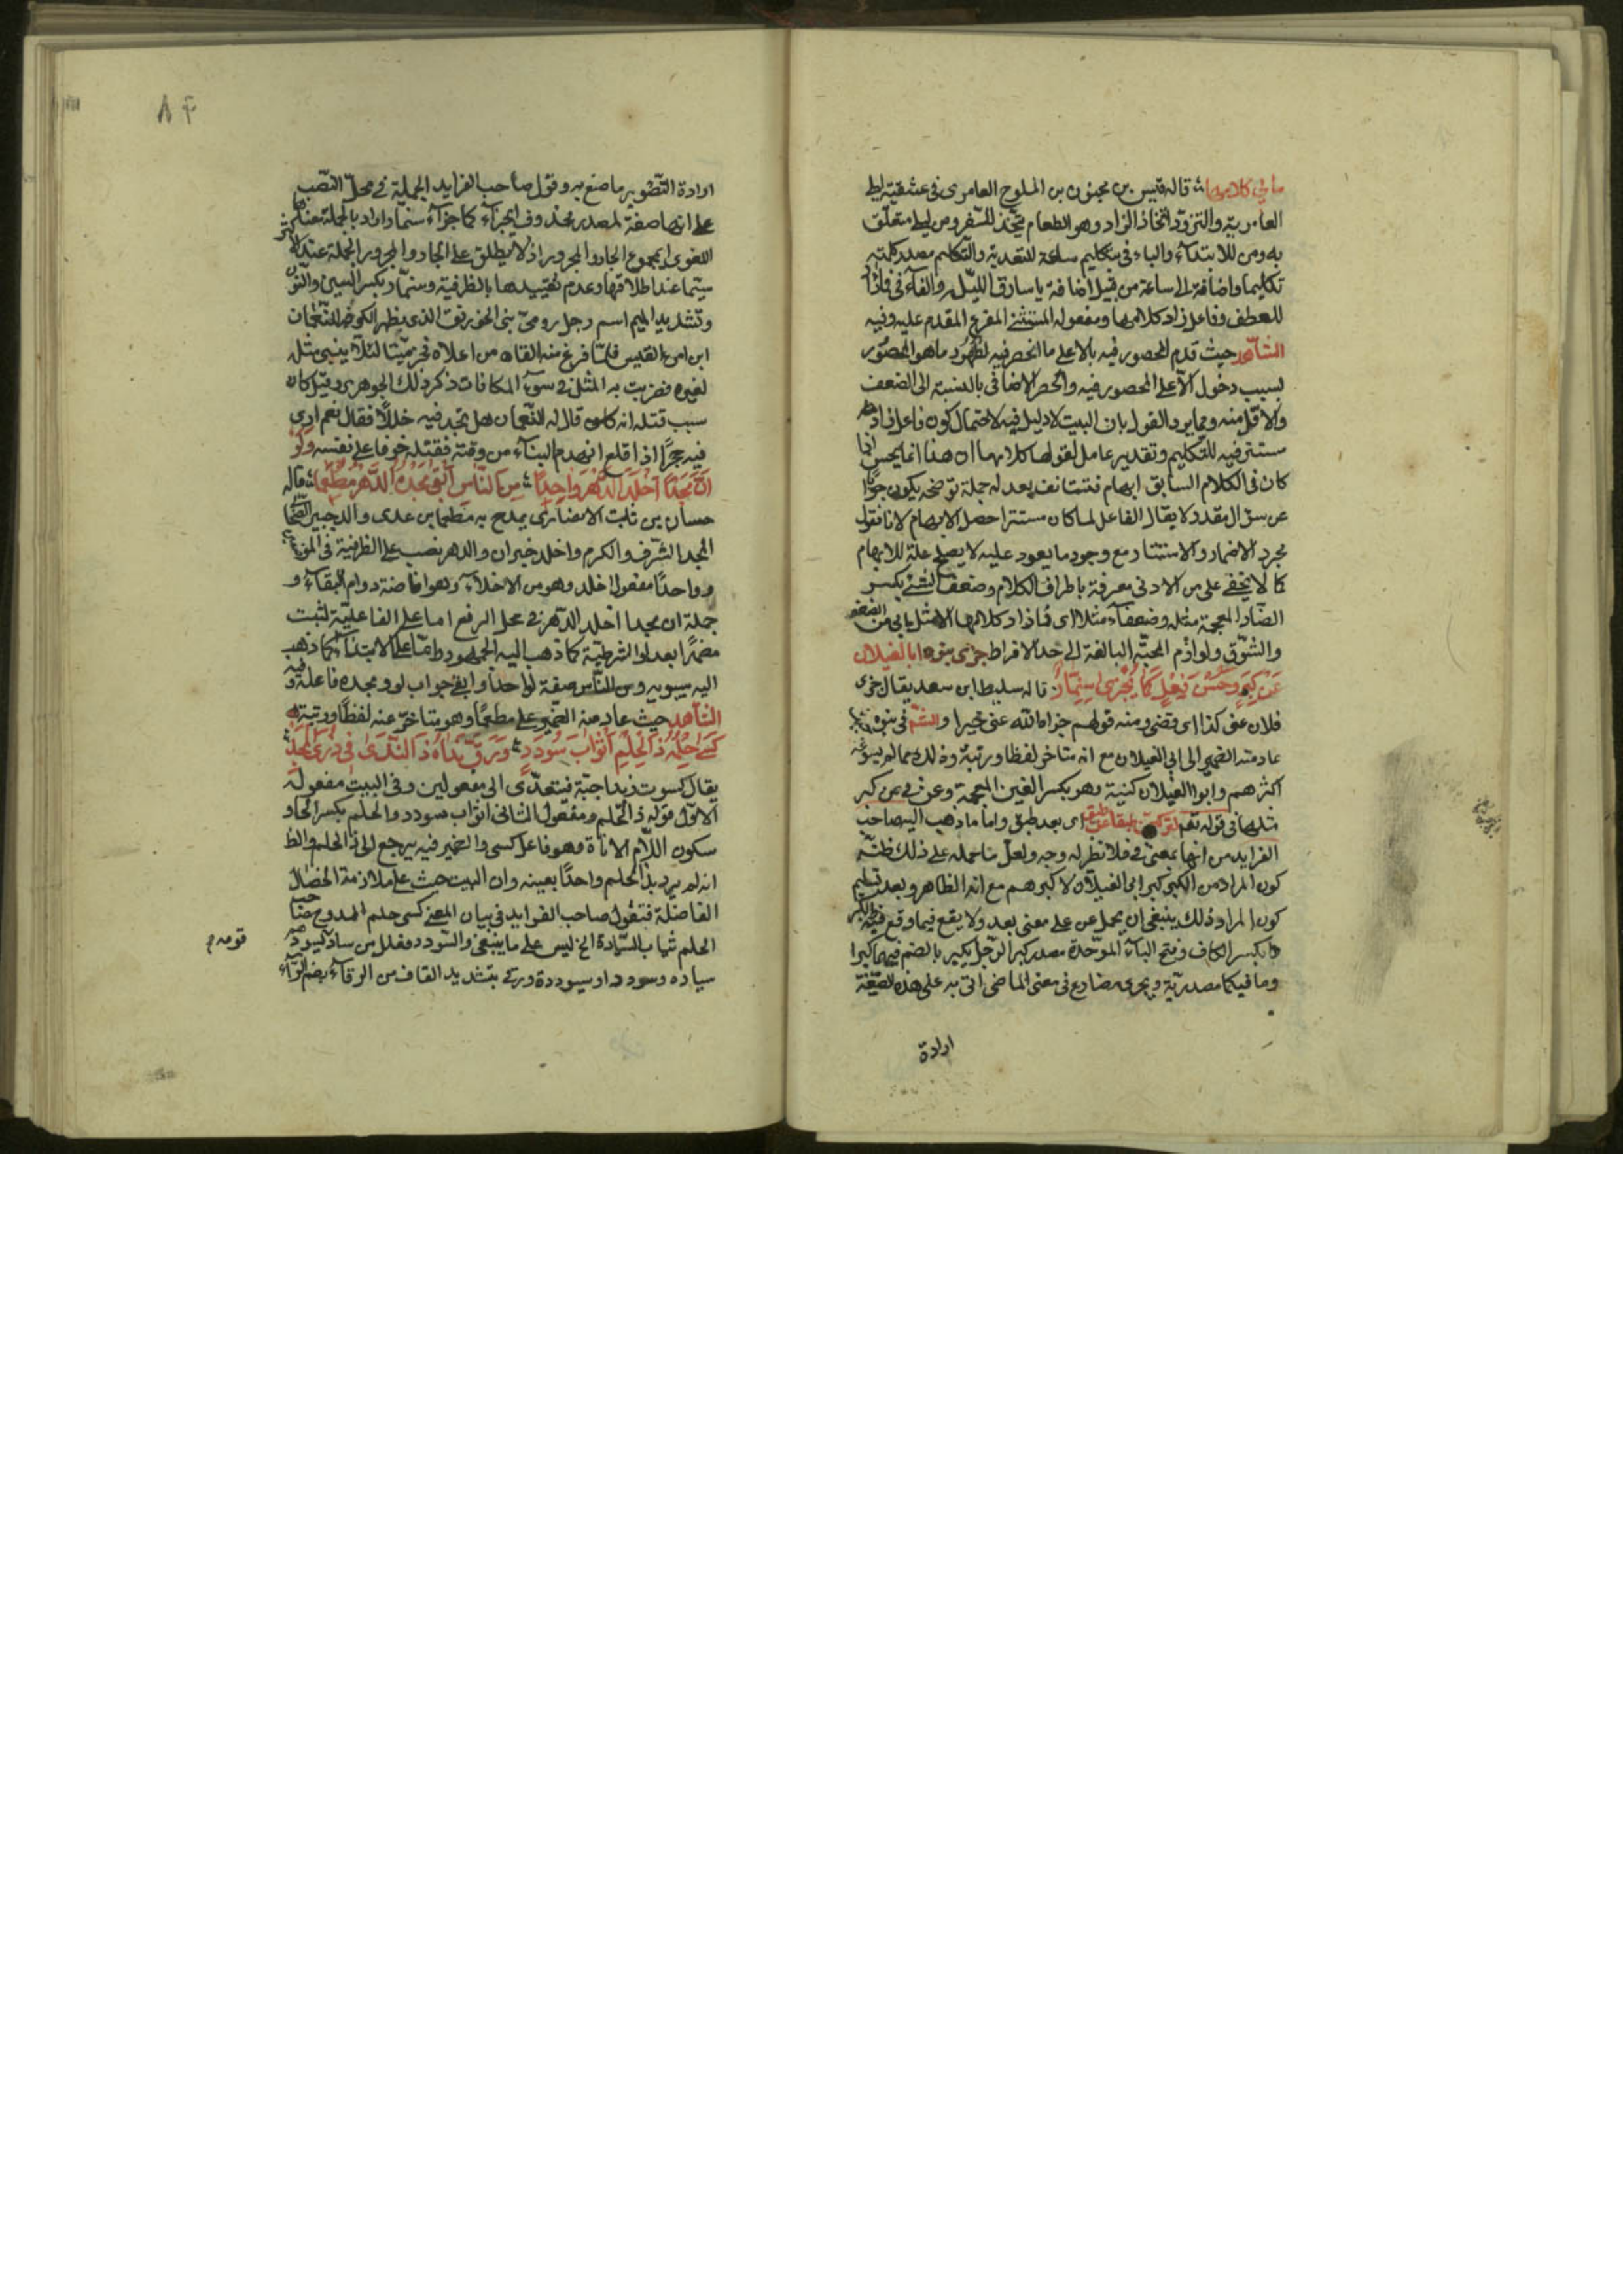 ما بي كلامها ؛ قاله قيس بن مجنون بن الملوح العامرى فى عشقيته ليلى
العامرية والتزود اتخاذ الزاد وهو الطعام يتخذ للسفر ومن ليلى متعلق
به ومن للابتدآء والباء فى بتكليم ساعة للتعدية والتكليم مصدر كلمته
تكليما واضافته الى ساعة من قبيل اضافة يا سارق الليل والفآء فى فما زاد
للعطف وفاعل زاد كلامها ومفعوله المستثنى المفرغ المقدم عليه وفيه
الشاهد حيث قدم المحصور فيه بالا على ما انحصر فيه لظهور ما هو المحصور
بسبب دخول الا على المحصور فيه والحصر الاضافى بالنسبة الى الضعف
والاقل منه ومما يرد القول بان البيت لا دليل فيه لاحتمال كون فاعل زاد
مستتر فيه للتكليم وتقدير عامل لقولها كلامها ان هذا انما يحسن اذا
كان فى الكلام السابق ابهام فتستانف بعد له جملة توضحه يكون جوابا
عن سؤال مقدر لا يقال الفاعل لما كان مستترا حصل الابهام لانا نقول
مجرد الاضمار والاستتار مع وجود ما يعود عليه لا يصلح علة للابهام
كما لا يخفى على من الادنى معرفة باطراف الكلام وضعف الشئ بكسر
الضاد المعجمة مثله وضعفآء مثلا اى فما زاد كلامها الا مثل ما بى من الضعف
والشوق ولوازم المحبة البالغة الى حد الافراط جزى بنوه ابا الغيلان
عن كبر وحسن فعل كما يجزى سنمار قاله سليط ابن سعد يقال جزى
فلان عنى كذا اى قضى ومنه قولهم جزاه الله عنى خيرا والشاهد فى بنوه
عاد منه الضمير الى ابى الغيلان مع انه متاخر لفظا ورتبة وذلك مما لم يسوغه
اكثرهم وابوا الغيلان كنية وهو بكسر الغين المعجمة وعن فى عن كبر
مثلها فى قوله تعم لتركبن طبقا عن طبق اى بعد طبق واما ما ذهب اليه صاحب
الفرايد من انها بمعنى فى فلا نظر له وجه ولعل ما حمله على ذلك ظنه
كون المراد من الكبر كبر ابى الغيلان لا كبرهم مع انه الظاهر وبعد تسليم
كون المراد ذلك ينبغى ان يحمل عن على معنى بعد ولا يقع فيما وقع فيه والكبر
بكسر الكاف وفتح البآء الموحدة مصدر كبر الرجل يكبر بالضم فيهما كبرا
وما فى كما مصدرية ويجزى مضارع فى معنى الماضى اتى به على هذه الصيغة
ارادة
٨٣
ارادة التصوير ما صنع به وقول صاحب الفرايد الجملة فى محل النصب
على انها صفة لمصدر محذوف اى جزآء كما جزآء سنمار اراد بالجملة معناها
اللغوى اى مجموع الجار والمجرور اذ لا يطلق على الجار والمجرور الجملة عند الاكثر
سيما عند اطلاقها وعدم تقييدها بالظرفية وسنمار بكسر السين والنون
وتشديد الميم اسم رجل رومى بنى الخورنق الذى بظهر الكوفة للنعمان
ابن امرء القيس فلما فرغ منه القاه من اعلاه فخر ميتا لئلا يبنى مثله
لغيره فضربت به المثل فى سوء المكافات ذكر ذلك الجوهرى وقيل كان
سبب قتله انه كان قال له النعمان هل تجد فيه خللا فقال نعم ادرى
فيه حجرا اذا قلع انهدم البنآء من وقته فقتله خوفا على نفسه ولو
ان مجدا اخلد الدهر واحدا ؛ من الناس ابقى مجده الدهر مطعما ؛ قاله
حسان بن ثابت الانصارى يمدح به مطعما بن عدى والد جبير الصحابى
المجد الشرف والكرم واخلد خبر ان والدهر نصب على الظرفية فى الموضعين
وواحدا مفعول اخلد وهو من الاخلاد وهو افاضة دوام البقآء و
جملة ان مجدا اخلد الدهر فى محل الرفع اما على الفاعلية لثبت
مضمرا بعد لو الشرطية كما ذهب اليه الجمهور واما على الابتدآء كما ذهب
اليه سيبويه ومن الناس صفة لواحدا وابقى جواب لو ومجده فاعله وفيه
الشاهد حيث عاد منه الضمير على مطعما وهو متاخر عنه لفظا ورتبة
كسى حلمه ذا الحلم اثواب سودد ؛ ورقى نداه ذا الندى فى ذرى المجد ؛
يقال كسوت زيدا جبة فيتعدى الى مفعولين وفى البيت مفعوله
الاول قوله ذا الحلم ومفعول الثانى اثواب سودد والحلم بكسر الحاء و
سكون اللام الاناة وهو فاعل كسى والضمير فيه يرجع الى ذا الحلم والظ
انه لم يرد بذا الحلم واحدا بعينه وان البيت حث على ملازمة الخصال
الفاضلة فتقول صاحب الفرايد فى بيان المعنى كسى حلم الممدوح صاحب
الحلم ثياب السيادة الخ ليس على ما ينبغى والسودد مفلل من ساد يسود
قومه م
سياده وسوددا وسيوددة ورقى بتشديد القاف من الرقآء بضم الرآء